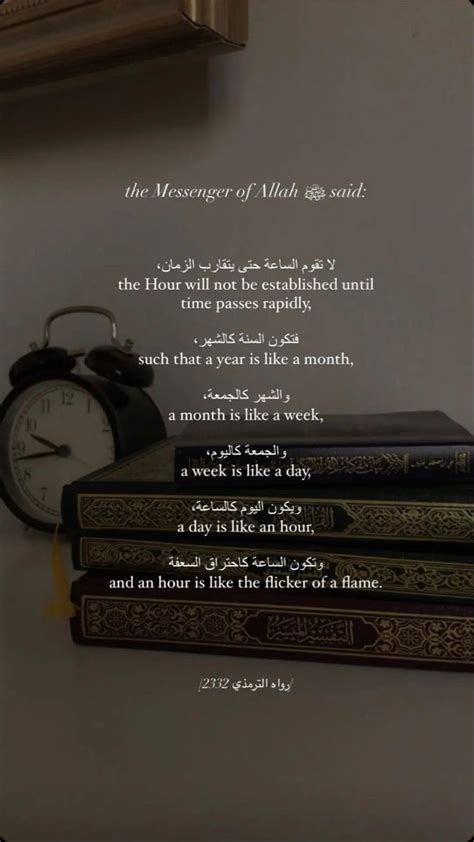 the Messenger of Allah ﷺ said:
لا تقوم الساعة حتى يتقارب الزمان،
the Hour will not be established until
time passes rapidly,
فتكون السنة كالشهر،
such that a year is like a month,
والشهر كالجمعة،
a month is like a week,
والجمعة كاليوم،
a week is like a day,
ويكون اليوم كالساعة،
a day is like an hour,
وتكون الساعة كاحتراق السعفة
and an hour is like the flicker of a flame.
التفسير الميسر
[رواه الترمذي 2332]